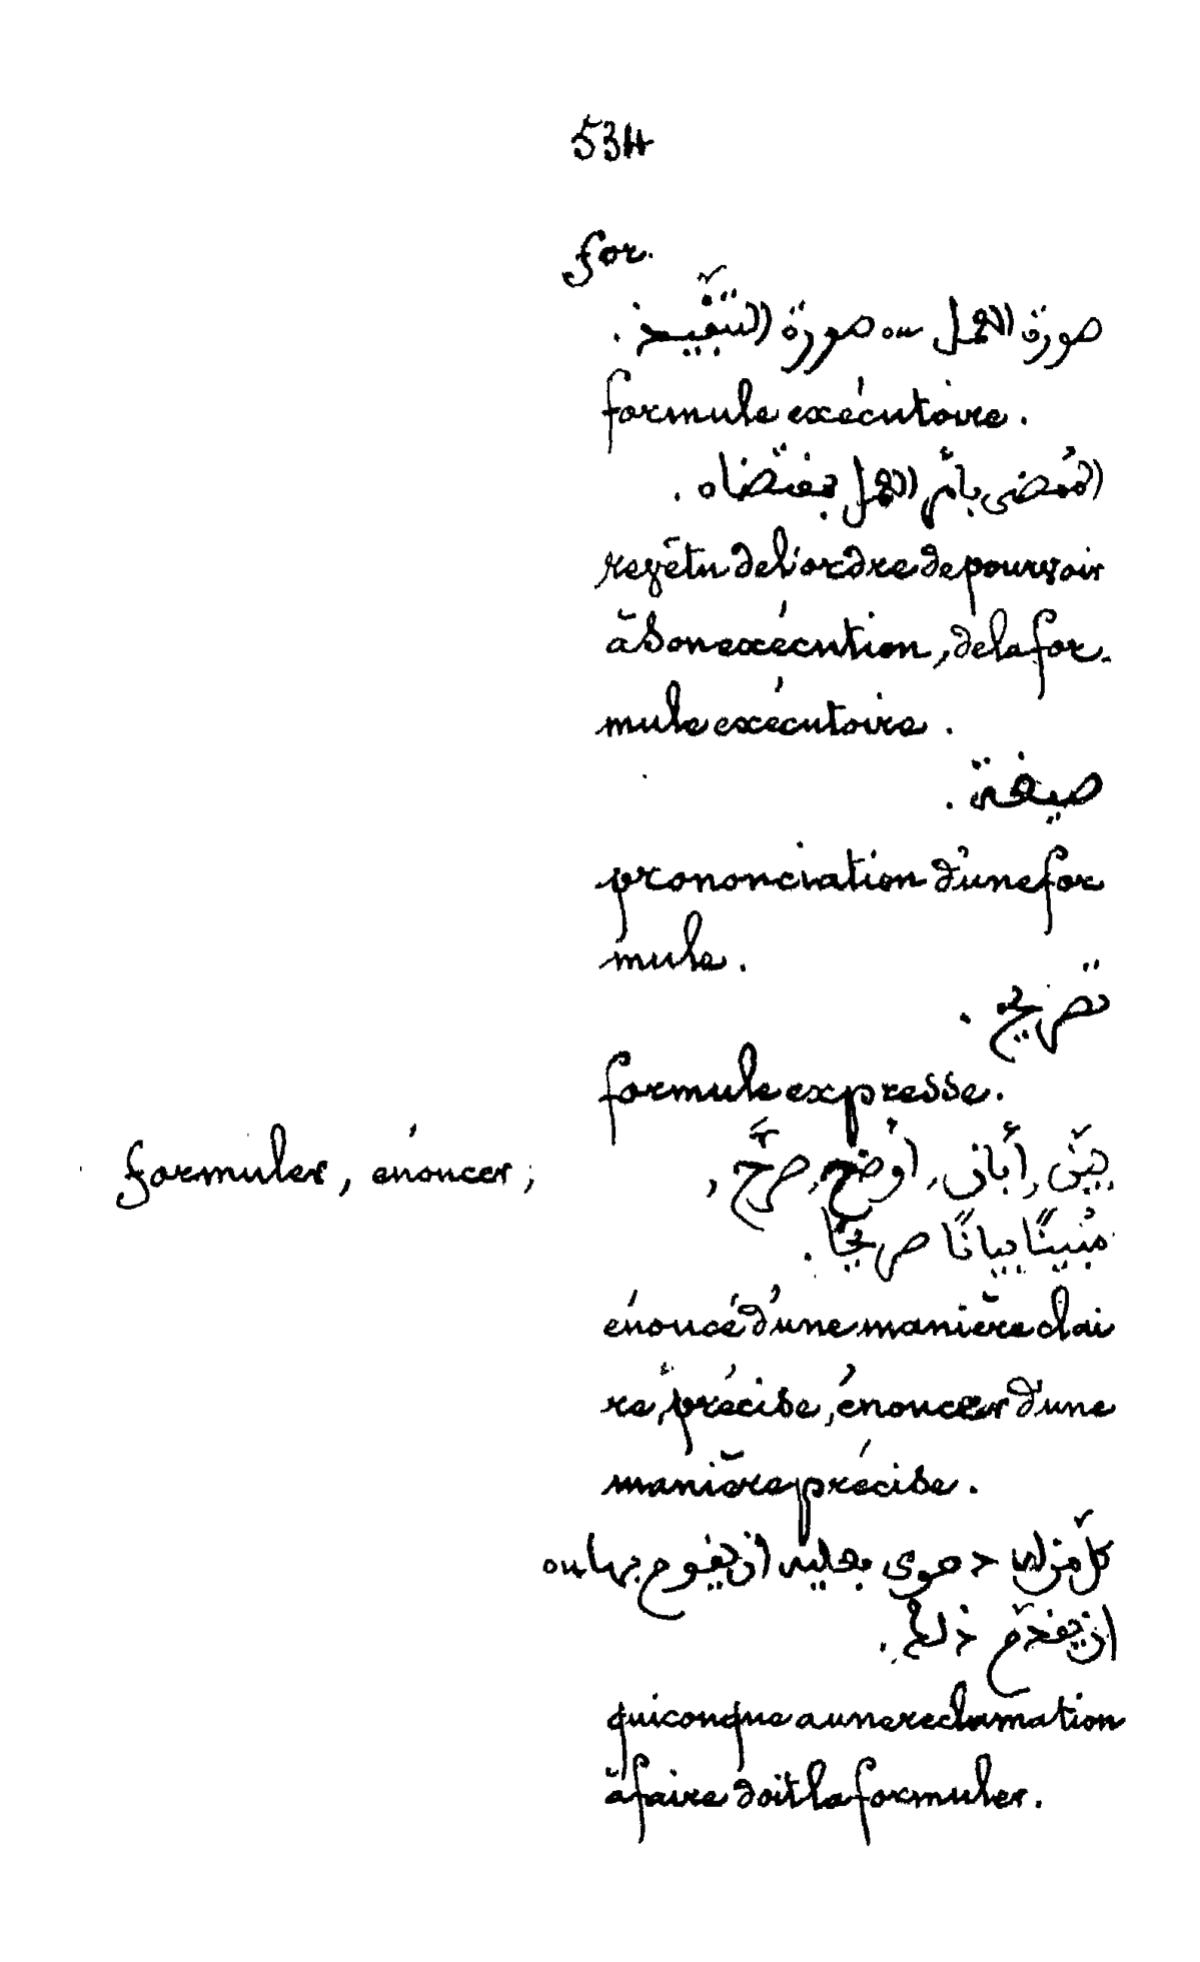 534
for.
صورة العمل ou صورة التنفيذ .
formule exécutoire .
الممضى بأمر العمل بمقتضاه .
revêtu de l'ordre de pourvoir
à son exécution, de la for-
mule exécutoire .
صيغة .
prononciation d'une for
mule .
تصريح .
formule expresse .
formuler, énoncer ; بيّن, أبان, اوضح, صرّح ,
مُبينًا بيانًا صريحًا .
énoncé d'une manière clai
re, précise, énoncer d'une
manière précise .
كلّ من له دعوى فعليه ان يقوم بها ou
ان يقدّم ذلك .
quiconque a une reclamation
à faire doit la formuler .